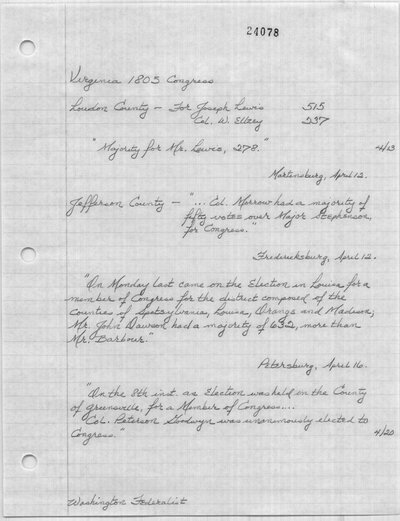 24078
Virginia 1803 Congress
Loudon County - For Joseph Lewis 515
Col. W. Ellzey 237
"Majority for Mr. Lewis, 278." 4/13
Martensburg, April 12.
Jefferson County - "... Col. Morrow had a majority of
fifty votes over Major Stephenson,
for Congress."
Fredericksburg, April 12.
"On Monday last came on the Election in Louisa, for a
member of Congress for the district composed of the
Counties of Spotsylvania, Louisa, Orange and Madison;
Mr. John Dawson had a majority of 632, more than
Mr. Barbour."
Petersburg, April 16.
"On the 8th inst. an Election was held in the County
of Greensville, for a Member of Congress....
Col. Peterson Goodwyn was unanimously elected to
Congress." 4/20
Washington Federalist